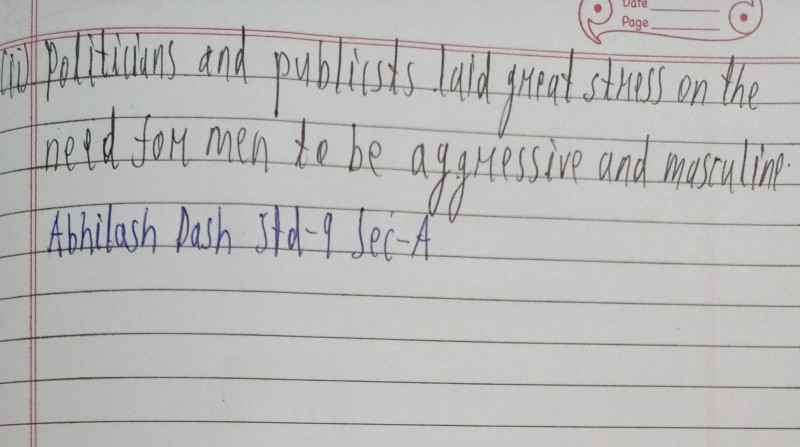 Date
Page
(ii) Politicians and publicsts laid great stress on the
need for men to be aggressive and masculine.
Abhilash Dash Std-9 Sec-A